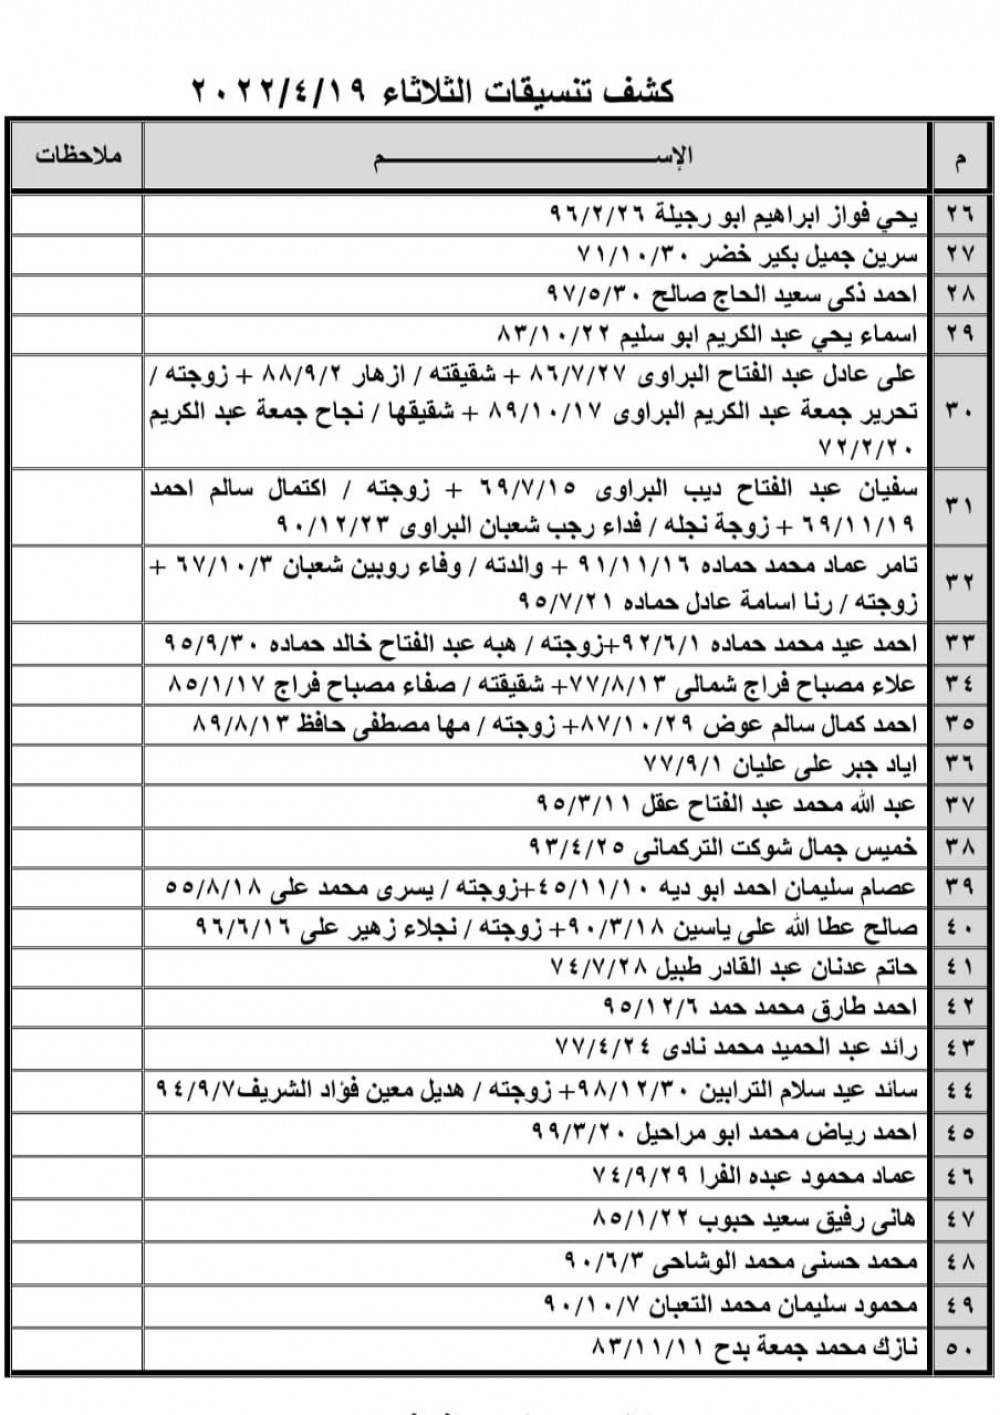 كشف تنسيقات الثلاثاء ٢٠٢٢/٤/١٩
م الإســـــــــــــــــم ملاحظات
٢٦ يحي فواز ابراهيم ابو رجيلة ٩٦/٢/٢٦
٢٧ سرين جميل بكير خضر ٧١/١٠/٣٠
٢٨ احمد ذكى سعيد الحاج صالح ٩٧/٥/٣٠
٢٩ اسماء يحي عبد الكريم ابو سليم ٨٣/١٠/٢٢
٣٠ على عادل عبد الفتاح البراوى ٨٦/٧/٢٧ + شقيقته / ازهار ٨٨/٩/٢ + زوجته /
تحرير جمعة عبد الكريم البراوى ٨٩/١٠/١٧ + شقيقها / نجاح جمعة عبد الكريم
٧٢/٢/٢٠
٣١ سفيان عبد الفتاح ديب البراوى ٦٩/٧/١٥ + زوجته / اكتمال سالم احمد
٦٩/١١/١٩ + زوجة نجله / فداء رجب شعبان البراوى ٩٠/١٢/٢٣
٣٢ تامر عماد محمد حماده ٩١/١١/١٦ + والدته / وفاء روبين شعبان ٦٧/١٠/٣ +
زوجته / رنا اسامة عادل حماده ٩٥/٧/٢١
٣٣ احمد عيد محمد حماده ٩٢/٦/١+زوجته / هبه عبد الفتاح خالد حماده ٩٥/٩/٣٠
٣٤ علاء مصباح فراج شمالى ٧٧/٨/١٣+ شقيقته / صفاء مصباح فراج ٨٥/١/١٧
٣٥ احمد كمال سالم عوض ٨٧/١٠/٢٩+ زوجته / مها مصطفى حافظ ٨٩/٨/١٣
٣٦ اياد جبر على عليان ٧٧/٩/١
٣٧ عبد الله محمد عبد الفتاح عقل ٩٥/٣/١١
٣٨ خميس جمال شوكت التركمانى ٩٣/٤/٢٥
٣٩ عصام سليمان احمد ابو ديه ٤٥/١١/١٠+زوجته / يسرى محمد على ٥٥/٨/١٨
٤٠ صالح عطا الله على ياسين ٩٠/٣/١٨+ زوجته / نجلاء زهير على ٩٦/٦/١٦
٤١ حاتم عدنان عبد القادر طبيل ٧٤/٧/٢٨
٤٢ احمد طارق محمد حمد ٩٥/١٢/٦
٤٣ رائد عبد الحميد محمد نادى ٧٧/٤/٢٤
٤٤ سائد عيد سلام الترابين ٩٨/١٢/٣٠+ زوجته / هديل معين فؤاد الشريف٩٤/٩/٧
٤٥ احمد رياض محمد ابو مراحيل ٩٩/٣/٢٠
٤٦ عماد محمود عبده الفرا ٧٤/٩/٢٩
٤٧ هانى رفيق سعيد حبوب ٨٥/١/٢٢
٤٨ محمد حسنى محمد الوشاحى ٩٠/٦/٣
٤٩ محمود سليمان محمد التعبان ٩٠/١٠/٧
٥٠ نازك محمد جمعة بدح ٨٣/١١/١١